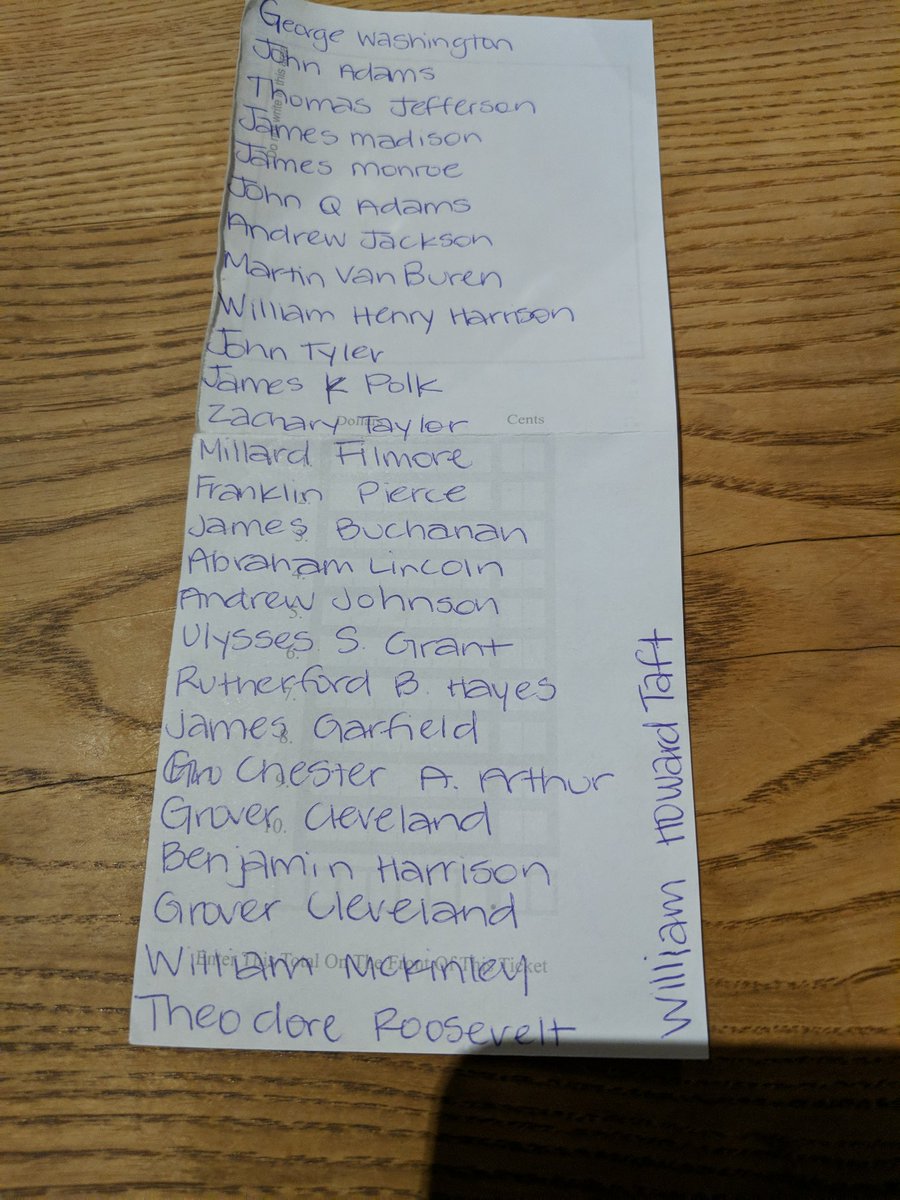 George Washington
John Adams
Thomas Jefferson
James madison
James monroe
John Q Adams
Andrew Jackson
Martin Van Buren
William Henry Harrison
John Tyler
James K Polk
Zachary Taylor
Dollars Cents
Millard Filmore
Franklin Pierce
James Buchanan
Abraham Lincoln
Andrew Johnson
Ulysses S. Grant
Rutherford B. Hayes
James Garfield
Chester A. Arthur
Grover Cleveland
Benjamin Harrison
Grover Cleveland
William McKinley
Enter This Total On The Front Of This Ticket
Theodore Roosevelt
William Howard Taft